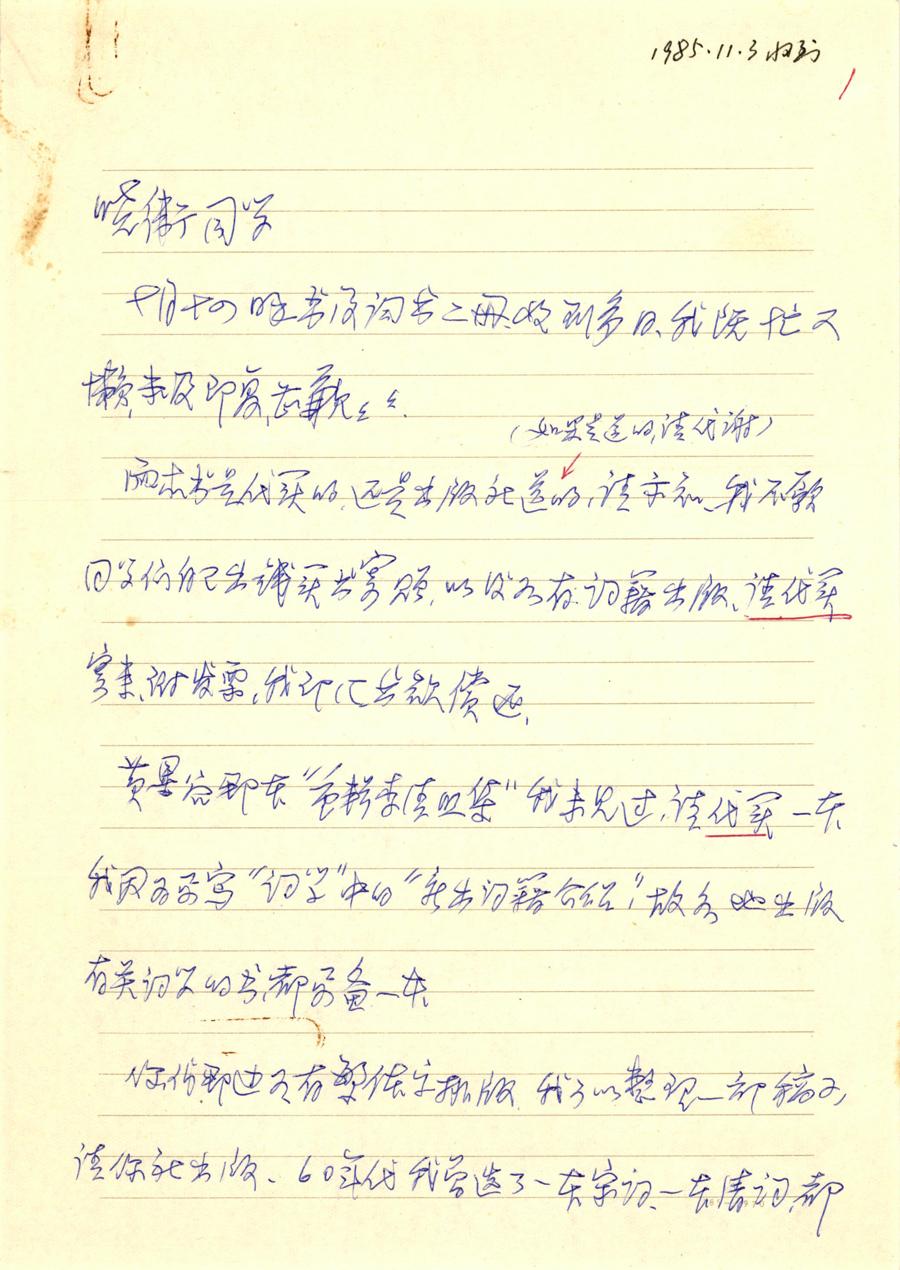 1985.11.3收到
1
晓衡同学
十月十四日手书及词书二册,收到多日,我既忙又
懒,未及即复,甚歉々々.
(如果是送的,请代谢)
两本书是代买的,还是出版社送的,请示知,我不愿
同学们自己出钱买书寄赠,以后如有词籍出版,请代买
寄来,附发票,我即汇书款偿还.
黄墨谷那本“重辑李清照集”我未见过,请代买一本
我因为要写“词学”中的“新出词籍介绍”,故各地出版
有关词学的书,都要备一本.
你们那边可有繁体字排版,我可以整理一部稿子,
请你社出版、60年代我曾选了一本宋词、一本清词,都